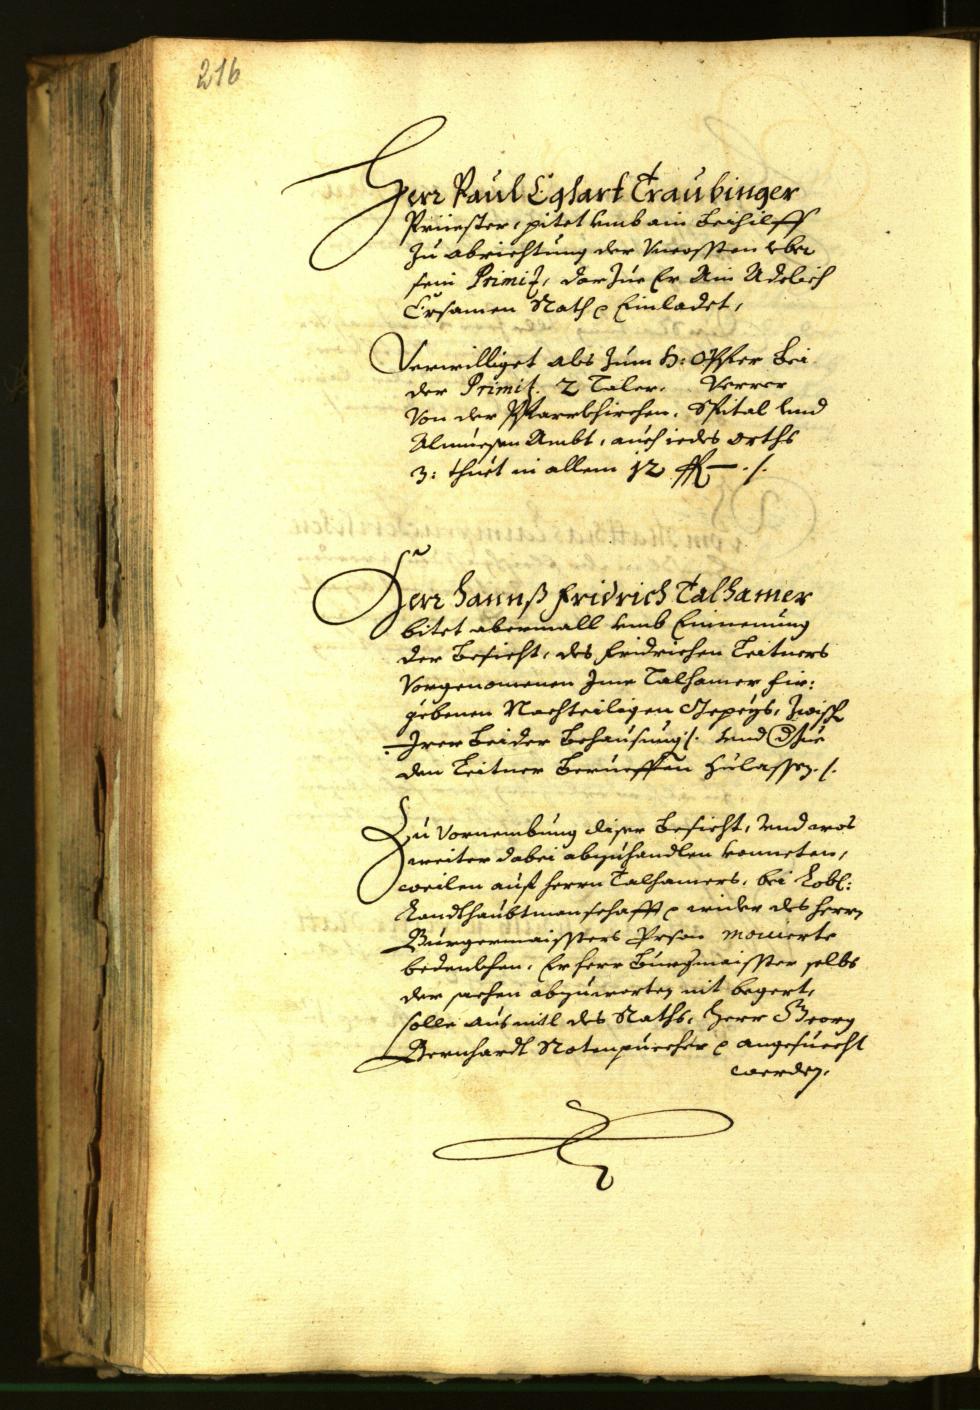 216
Herr Paul Eghart Traubinger
Priiester, pitet umb ain Beihilff
zu abrichtung der Uncossten uber
sein Primiz, darzue Er Ain Adelich
Ersamen Rath Einladet,
Verwilliget als zum H: Opffer bei
der Primiz. 2 Taler. Verrer
von der Pfarrkhirchen, Spital und
Almuesen Ambt, auch iedes orths
3: thuet in allem 12 fl — ./.
Herr Hannß Fridrich Talhamer
bitet abermall umb Einnemung
der Besicht, des Fridrichen Leitners
vorgenomenen Ime Talhamer fir:
gebenen Nachteiligen Gepeys, zwisch
Irer beider Behausung /. und
den Leitner Berueffen zulassen ./.
Zu Vornembung diser Besicht, und was
weiter dabei abzuhandlen konneten,
weilen auf herrn Talhamers, bei Lobl:
Landtshaubtmanschafft wider des herrn
Burgermaissters Person movierte
bedenkhen, Er herr Burgmaisster selbs
der sachen abzuwarten nit begert,
solle aus mitl des Raths, Herr Georg
Bernhardt angesuecht
werden.